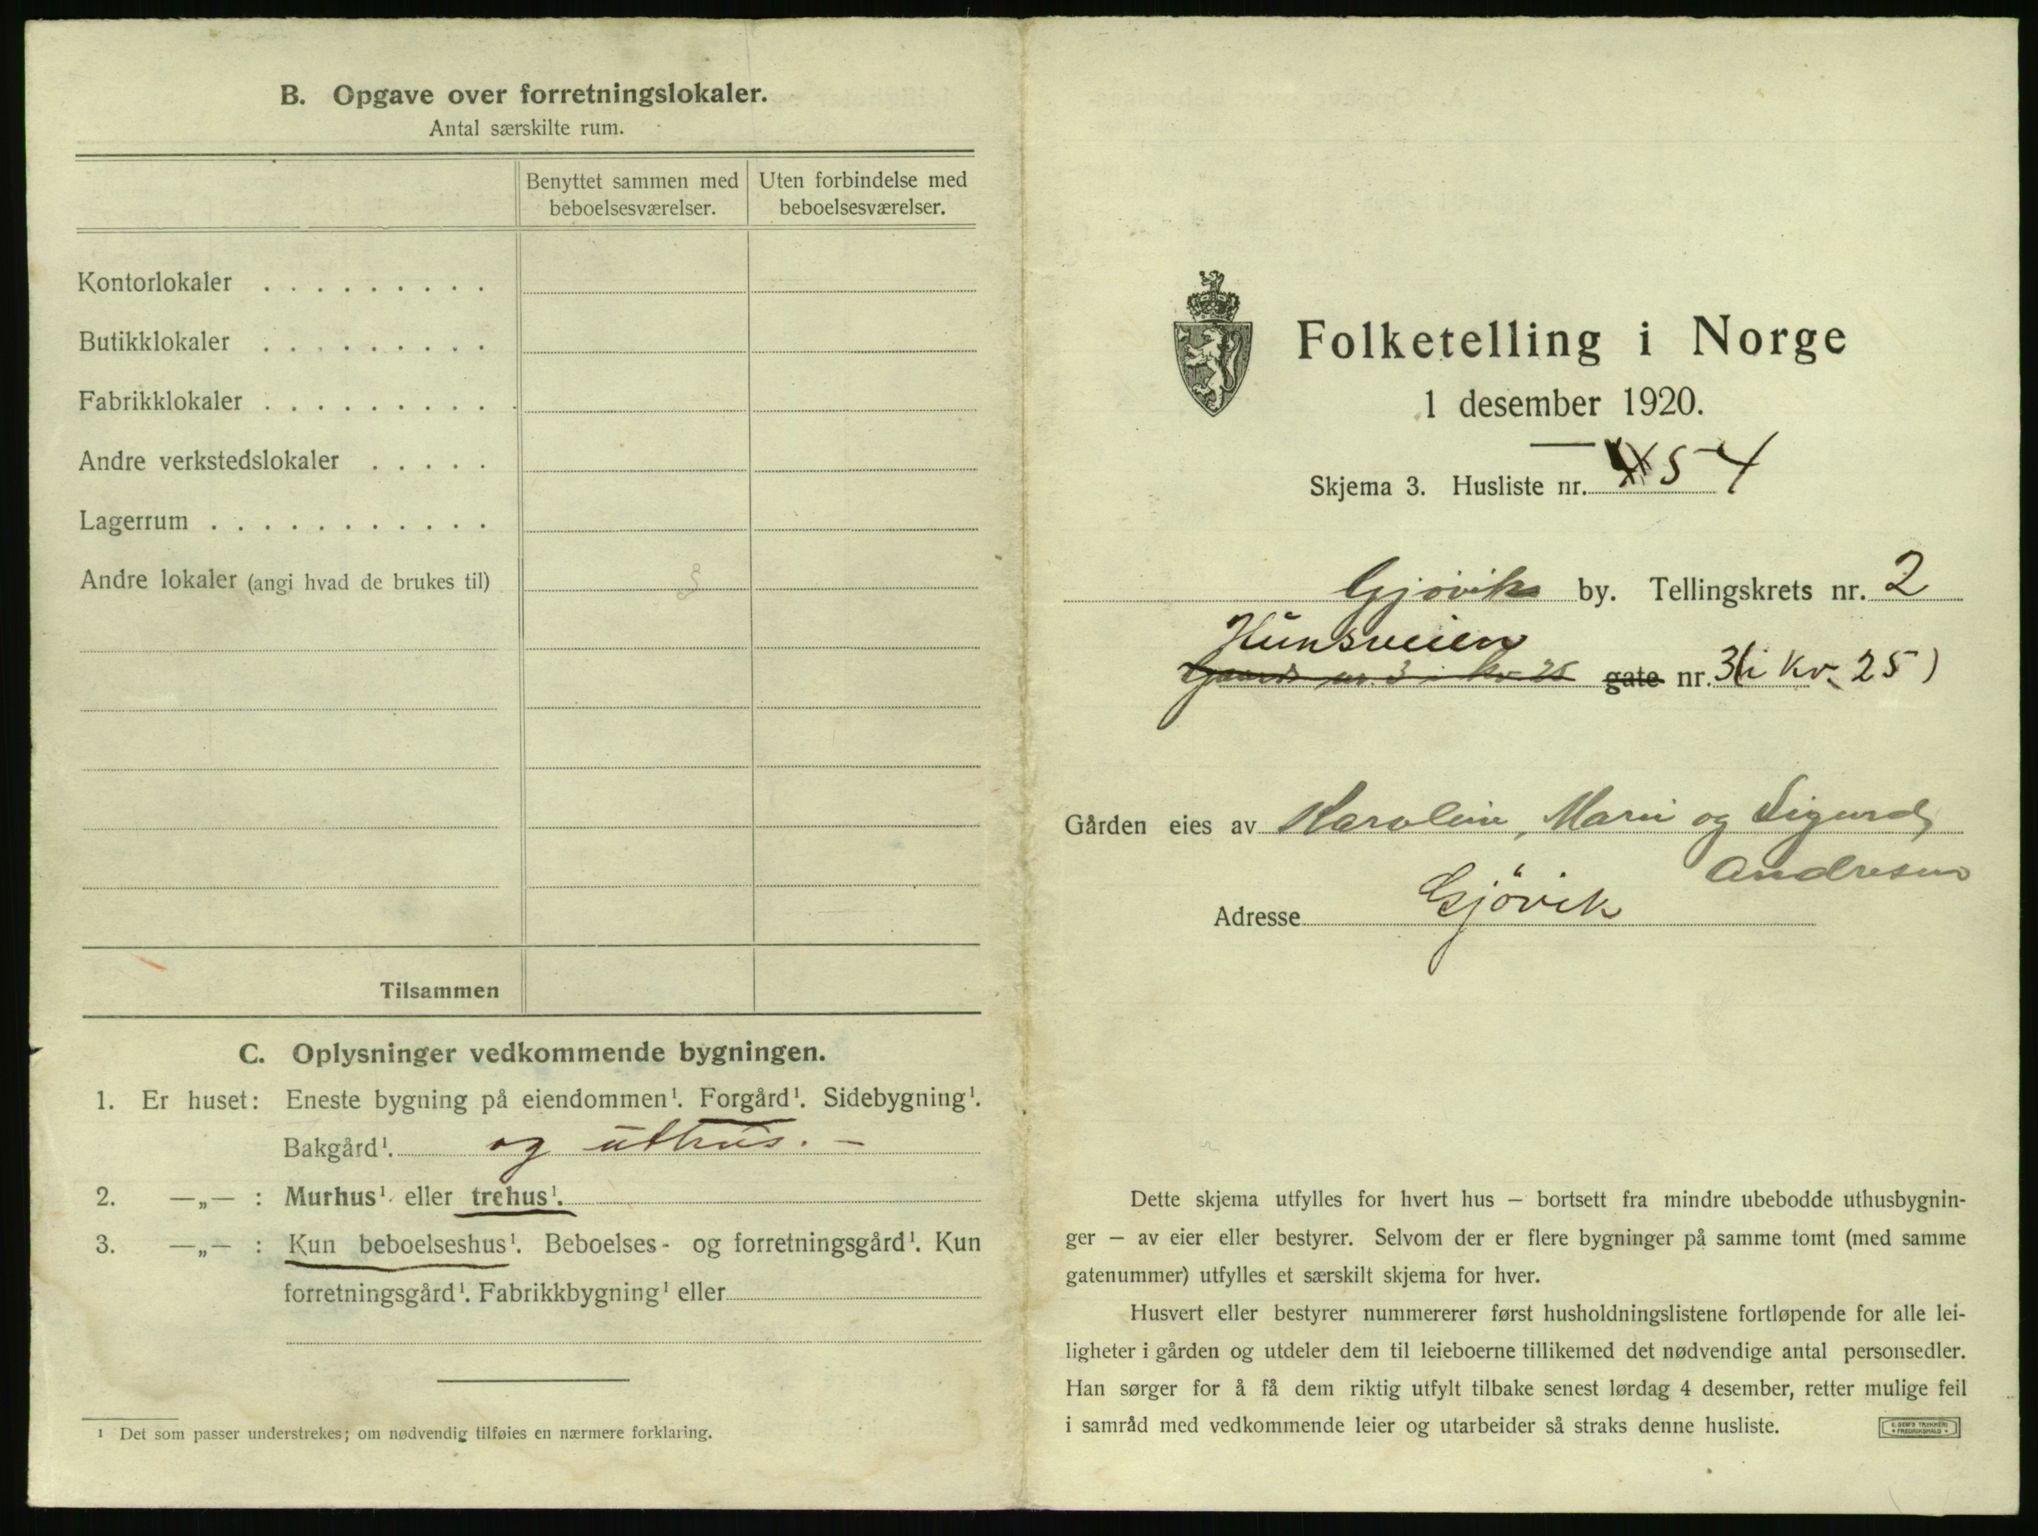 B. Opgave over forretningslokaler.
Antal særskilte rum.
Benyttet sammen med beboelsesværelser.
Uten forbindelse med beboelsesværelser.
Kontorlokaler . . . . . . . . .
Butikklokaler . . . . . . . . .
Fabrikklokaler . . . . . . . . .
Andre verkstedslokaler . . . . .
Lagerrum . . . . . . . . . . .
Andre lokaler (angi hvad de brukes til)
Tilsammen
C. Oplysninger vedkommende bygningen.
1. Er huset: Eneste bygning på eiendommen¹. Forgård¹. Sidebygning¹.
Bakgård¹. og uthus. —
2. —„— : Murhus¹ eller trehus¹.
3. —„— : Kun beboelseshus¹. Beboelses- og forretningsgård¹. Kun
forretningsgård¹. Fabrikkbygning¹ eller
¹ Det som passer understrekes; om nødvendig tilføies en nærmere forklaring.
Folketelling i Norge
1 desember 1920.
Skjema 3. Husliste nr. 54
Gjøviks by. Tellingskrets nr. 2
Hunsveien
Gaards nr. 3 i kv 25 gate nr. 3 (i kv. 25)
Gården eies av Karoline, Marie og Sigurd
Andresen
Adresse Gjøvik
Dette skjema utfylles for hvert hus – bortsett fra mindre ubebodde uthusbygnin-
ger – av eier eller bestyrer. Selvom der er flere bygninger på samme tomt (med samme
gatenummer) utfylles et særskilt skjema for hver.
Husvert eller bestyrer nummererer først husholdningslistene fortløpende for alle lei-
ligheter i gården og utdeler dem til leieboerne tillikemed det nødvendige antal personsedler.
Han sørger for å få dem riktig utfylt tilbake senest lørdag 4 desember, retter mulige feil
i samråd med vedkommende leier og utarbeider så straks denne husliste.